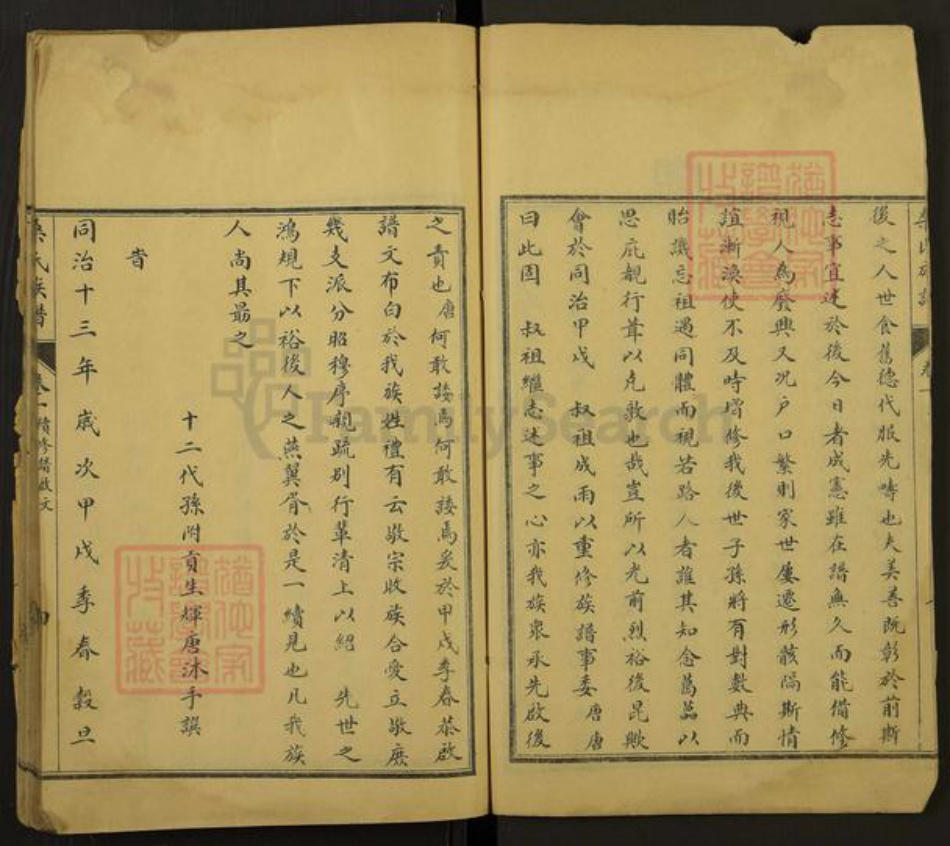 後之人世食舊德代服先疇也夫美善既彰於前斯
志事宜述於後今日者成憲雖在譜無久而能備修
視人為廢興又況戶口繁則家世屢遷形骸隔斯情
誼漸渙使不及時增修我後世子孫將有對數典而
貽譏忘祖遇同體而視若路人者誰其知念舊菑以
思庇親行葦以克敦也哉豈所以光前烈裕後昆歟
會於同治甲戌 叔祖成雨以重修族譜事委唐唐
曰此固 叔祖繼志述事之心亦我族眾承先啟後
之責也唐何敢諉焉何敢諉焉爰於甲戌季春恭啟
譜文布白於我族姓禮有云敬宗收族合愛立敬庶
幾支派分昭穆序親疏別行輩清上以紹 先世之
鴻規下以裕後人之燕翼胥於是一續見也凡我族
人尚其勗之
旹
十二代孫附貢生輝唐沐手譔
同治十三年歲次甲戌季春穀旦
氏族譜 卷一續修譜啟文
FamilySearch